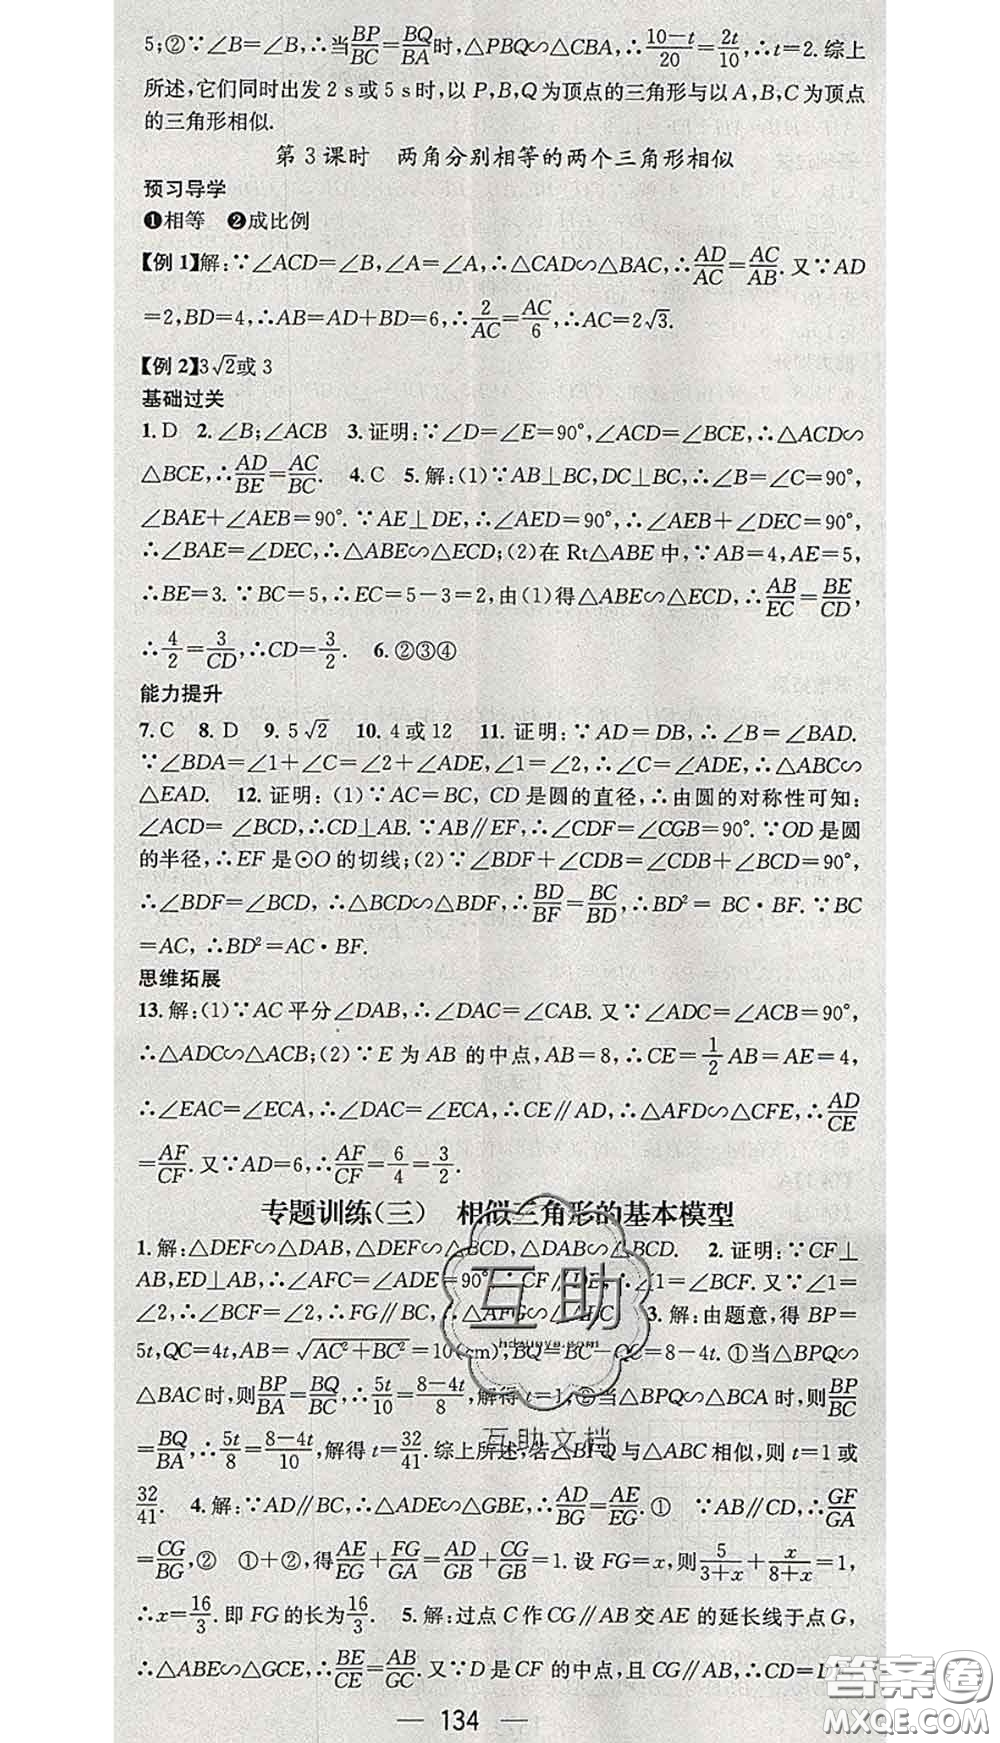 5;②∵∠B=∠B,∴当BP/BC=BQ/BA时,△PBQ∽△CBA,∴(10-t)/20=2t/10,∴t=2.综上
所述,它们同时出发2 s或5 s时,以P,B,Q为顶点的三角形与以A,B,C为顶点
的三角形相似.
第3课时 两角分别相等的两个三角形相似
预习导学
❶相等 ❷成比例
【例1】解:∵∠ACD=∠B,∠A=∠A,∴△CAD∽△BAC,∴AD/AC=AC/AB.又∵AD
=2,BD=4,∴AB=AD+BD=6,∴2/AC=AC/6,∴AC=2√3.
【例2】3√2或3
基础过关
1.D 2.∠B;∠ACB 3.证明:∵∠D=∠E=90°,∠ACD=∠BCE,∴△ACD∽
△BCE,∴AD/BE=AC/BC. 4.C 5.解:(1)∵AB⊥BC,DC⊥BC,∴∠B=∠C=90°,
∠BAE+∠AEB=90°.∵AE⊥DE,∴∠AED=90°,∴∠AEB+∠DEC=90°,
∴∠BAE=∠DEC,∴△ABE∽△ECD;(2)在Rt△ABE中,∵AB=4,AE=5,
∴BE=3.∵BC=5,∴EC=5-3=2,由(1)得△ABE∽△ECD,∴AB/EC=BE/CD,
∴4/2=3/CD,∴CD=3/2. 6.②③④
能力提升
7.C 8.D 9.5√2 10.4或12 11.证明:∵AD=DB,∴∠B=∠BAD.
∵∠BDA=∠1+∠C=∠2+∠ADE,∠1=∠2,∴∠C=∠ADE,∴△ABC∽
△EAD. 12.证明:(1)∵AC=BC,CD是圆的直径,∴由圆的对称性可知:
∠ACD=∠BCD,∴CD⊥AB.∵AB∥EF,∴∠CDF=∠CGB=90°.∵OD是圆
的半径,∴EF是⊙O的切线;(2)∵∠BDF+∠CDB=∠CDB+∠BCD=90°,
∴∠BDF=∠BCD,∴△BCD∽△BDF,∴BD/BF=BC/BD,∴BD²=BC·BF.∵BC
=AC,∴BD²=AC·BF.
思维拓展
13.解:(1)∵AC平分∠DAB,∴∠DAC=∠CAB.又∵∠ADC=∠ACB=90°,
∴△ADC∽△ACB;(2)∵E为AB的中点,AB=8,∴CE=1/2AB=AE=4,
∴∠EAC=∠ECA,∴∠DAC=∠ECA,∴CE∥AD,∴△AFD∽△CFE,∴AD/CE
=AF/CF.又∵AD=6,∴AF/CF=6/4=3/2.
专题训练(三) 相似三角形的基本模型
1.解:△DEF∽△DAB,△DEF∽△BCD,△DAB∽△BCD. 2.证明:∵CF⊥
AB,ED⊥AB,∴∠AFC=∠ADE=90°,∴CF∥DE,∴∠1=∠BCF.又∵∠1=
∠2,∴∠BCF=∠2,∴FG∥BC,∴△AFG∽△ 3.解:由题意,得BP=
5t,QC=4t,AB=√(AC²+BC²)=10(cm),BQ=BC-QC=8-4t.①当△BPQ∽
△BAC时,则BP/BA=BQ/BC,∴5t/10=(8-4t)/8,解得t=1,②当△BPQ∽△BCA时,则BP/BC
=BQ/BA,∴5t/8=(8-4t)/10,解得t=32/41.综上所述,若△BPQ与△ABC相似,则t=1或
32/41. 4.解:∵AD∥BC,∴△ADE∽△GBE,∴AD/BG=AE/EG.① ∵AB∥CD,∴GF/GA
=CG/BG,② ①+②,得AE/EG+FG/GA=AD/GB+CG/GB=1.设FG=x,则5/(3+x)+x/(8+x)=1,
∴x=16/3.即FG的长为16/3. 5.解:过点C作CG∥AB交AE的延长线于点G,
∴△ABE∽△GCE,∴BE/CE=AB/GC.又∵D是CF的中点,且CG∥AB,∴CD=
— 134 —
互助
互助文档
答案圈
MXQE.COM